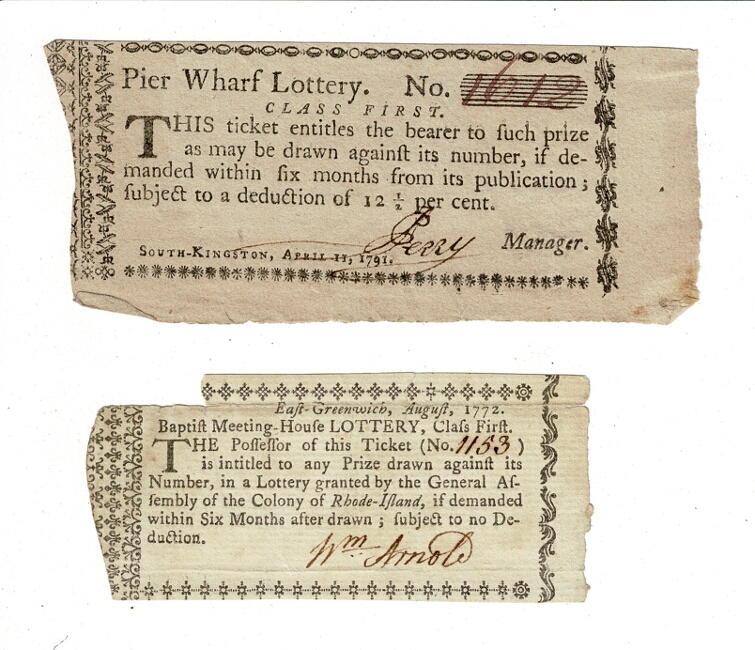 Pier Wharf Lottery. No. 1612
CLASS FIRST.
THIS ticket entitles the bearer to ſuch prize
as may be drawn againſt its number, if de-
manded within ſix months from its publication;
ſubject to a deduction of 12 1/2 per cent.
Perry Manager.
SOUTH-KINGSTON, APRIL 11, 1791.
Eaſt-Greenwich, Auguſt, 1772.
Baptiſt Meeting-Houſe LOTTERY, Claſs Firſt.
THE Poſſeſſor of this Ticket (No. 1153)
is intitled to any Prize drawn againſt its
Number, in a Lottery granted by the General Aſ-
ſembly of the Colony of Rhode-Iſland, if demanded
within Six Months after drawn; ſubject to no De-
duction.
Wm. Arnold